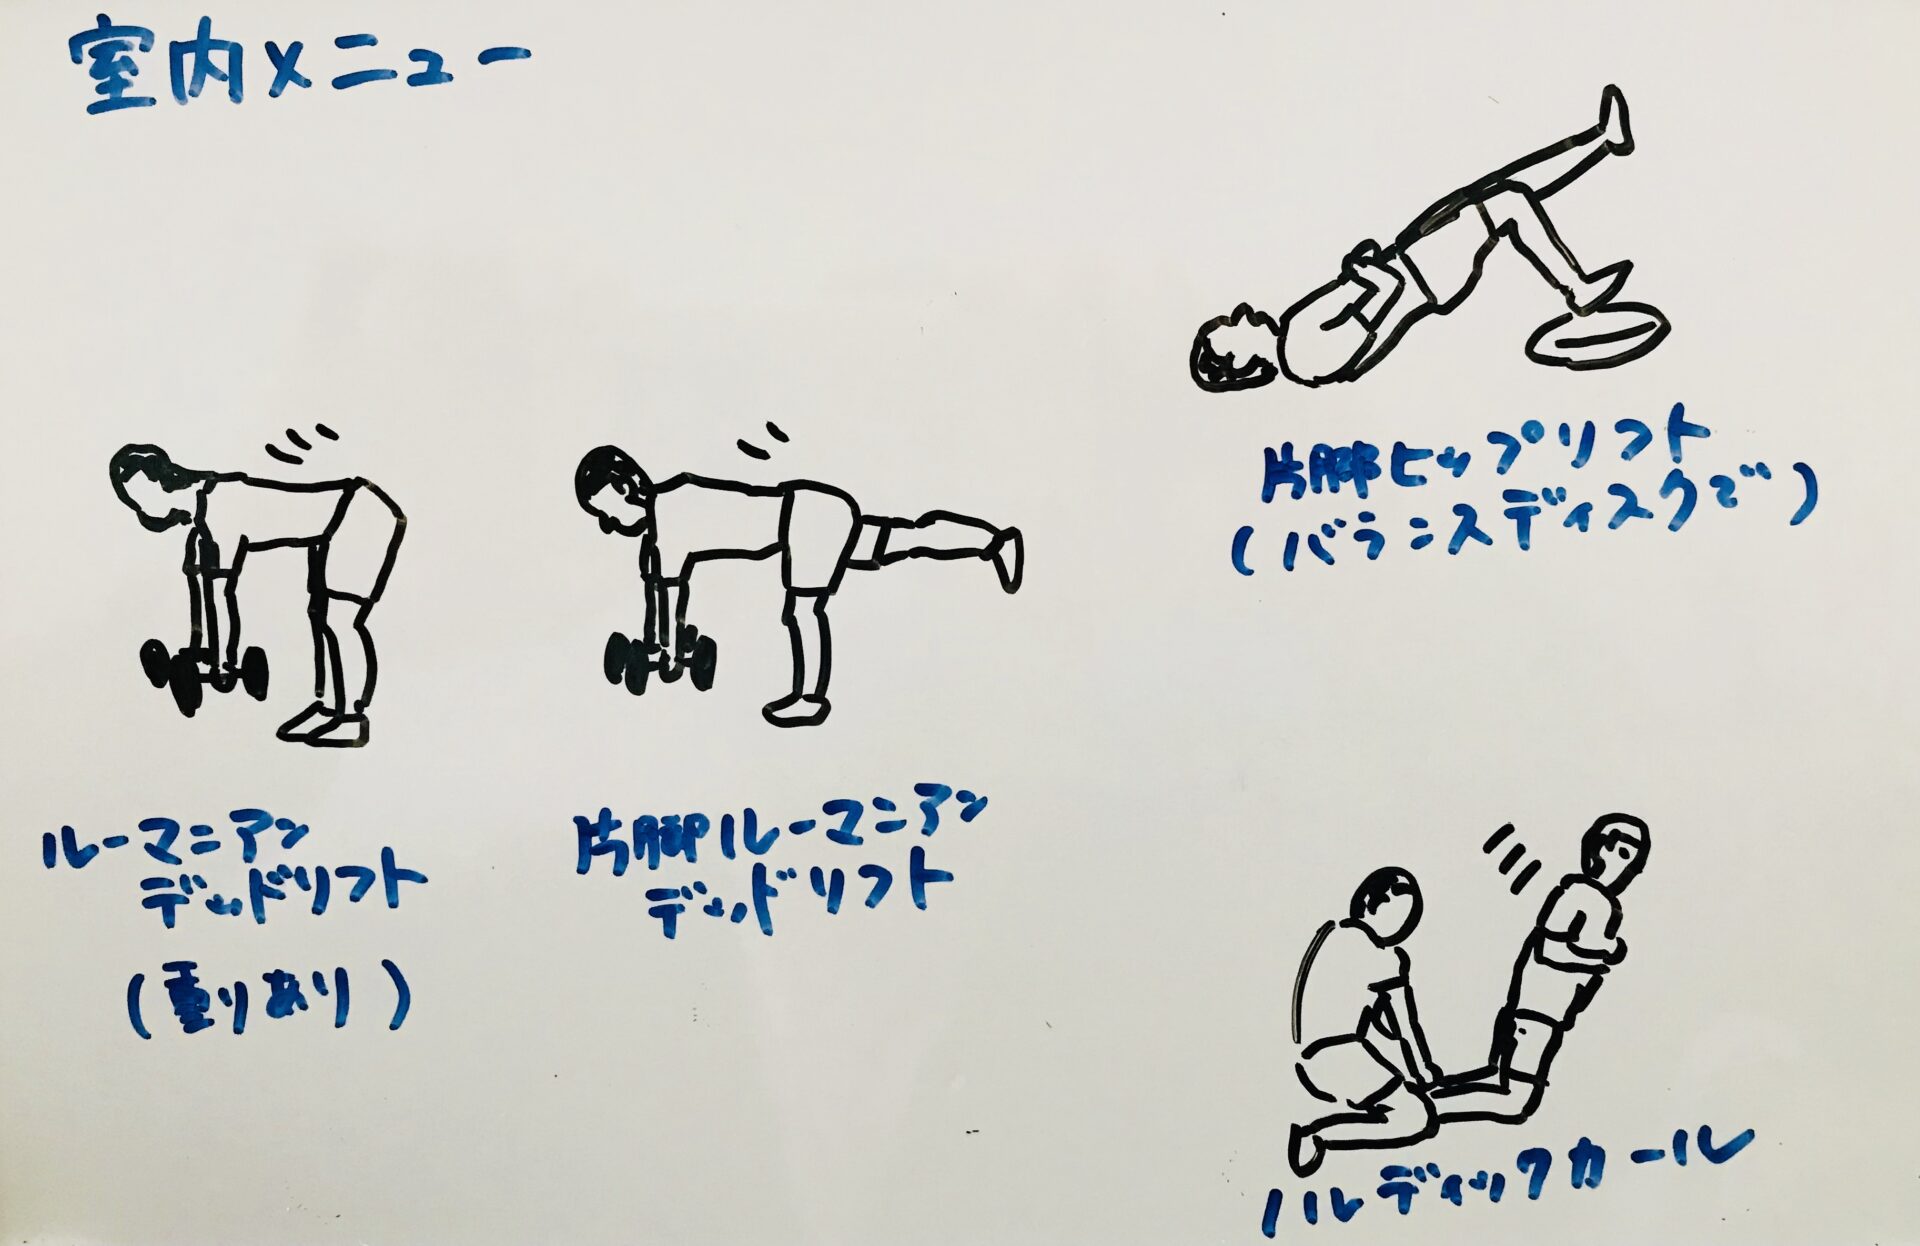 室内メニュー
片脚ヒップリフト
（バランスディスクで）
ルーマニアン
デッドリフト
（重りあり）
片脚ルーマニアン
デッドリフト
ノルディックカール